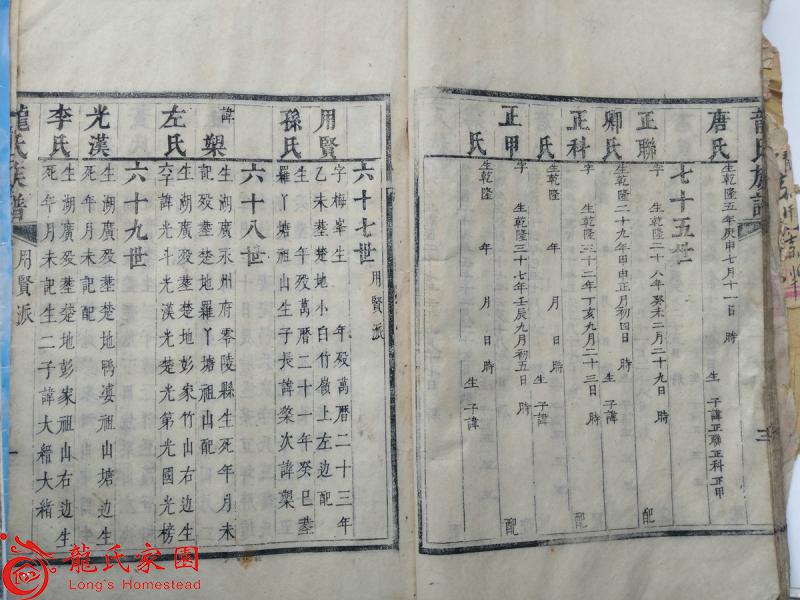 龍氏族譜
唐氏
生乾隆五年庚申七月十一日 時 生 子諱正聯正科正甲
七十五世
正聯
字 生乾隆二十八年癸未二月二十九日 時 配
卿氏
生乾隆二十九年甲申正月初四日 時 生 子諱
正科
字 生乾隆三十二年丁亥九月二十三日 時 配
氏
生乾隆 年 月 日 時 生 子諱
正甲
字 生乾隆三十七年壬辰九月初五日 時 配
氏
生乾隆 年 月 日 時 生 子諱
六十七世 用賢派
用賢
字梅峯生 年殁萬暦二十三年
乙未塟楚地小白竹嶺上左边配
孫氏
生 年殁萬暦二十一年癸巳塟
羅丫塘祖山生子長諱榮次諱㮚
六十八世
諱㮚
生湖廣永州府零陵縣生死年月未
記殁塟楚地羅丫塘祖山配
左氏
生湖廣殁塟楚地彭家竹山右边生
六子諱光斗光漢光楚光第光國光榜
六十九世
光漢
生湖廣殁塟楚地鴨婆祖山塘边生
死年月未記配
李氏
生湖廣殁塟楚地彭家祖山右边生
死年月未記生二子諱大縉大䅵
龍氏族譜 用賢派 一
龍氏家園
Long's Homestead